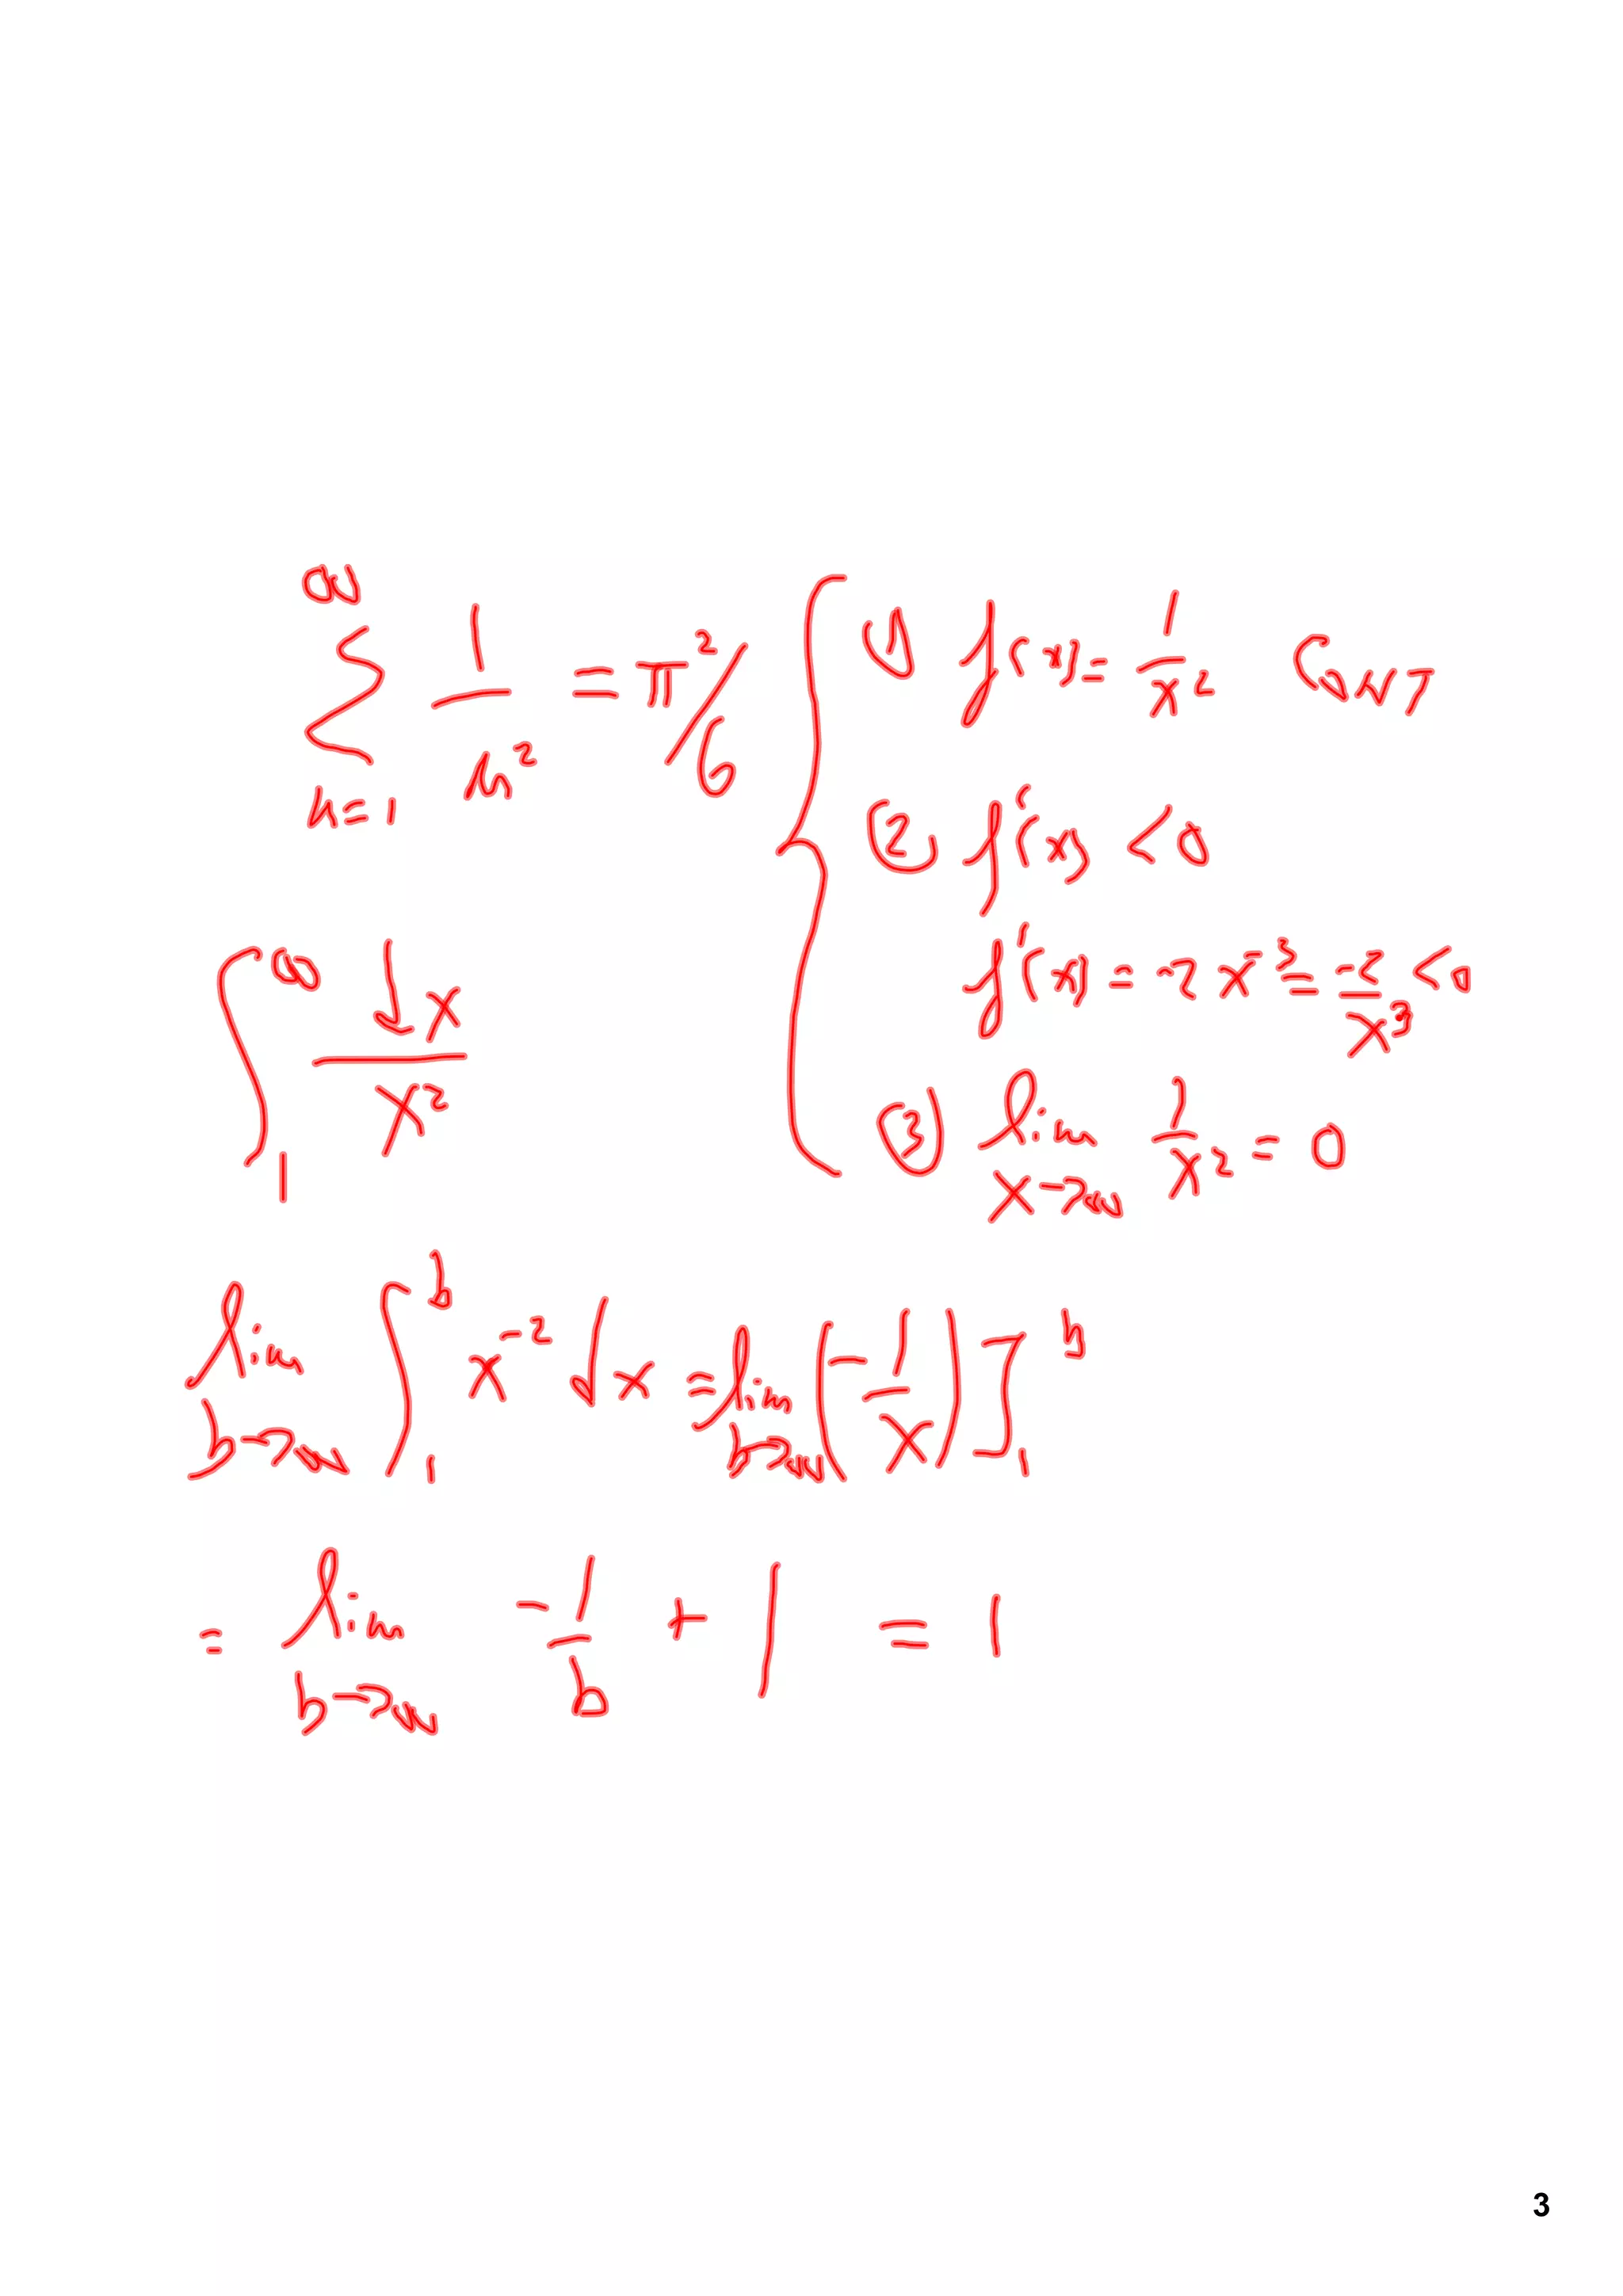 ∞
∑ 1/n² = π²/6
n=1
① f(x) = 1/x² Cont
② f'(x) < 0
f'(x) = -2x⁻³ = -2/x³ < 0
③ lim x→∞ 1/x² = 0
∫₁^∞ dx/x²
lim b→∞ ∫₁^b x⁻² dx = lim b→∞ [(-1/x)]₁^b
= lim b→∞ -1/b + 1 = 1
3